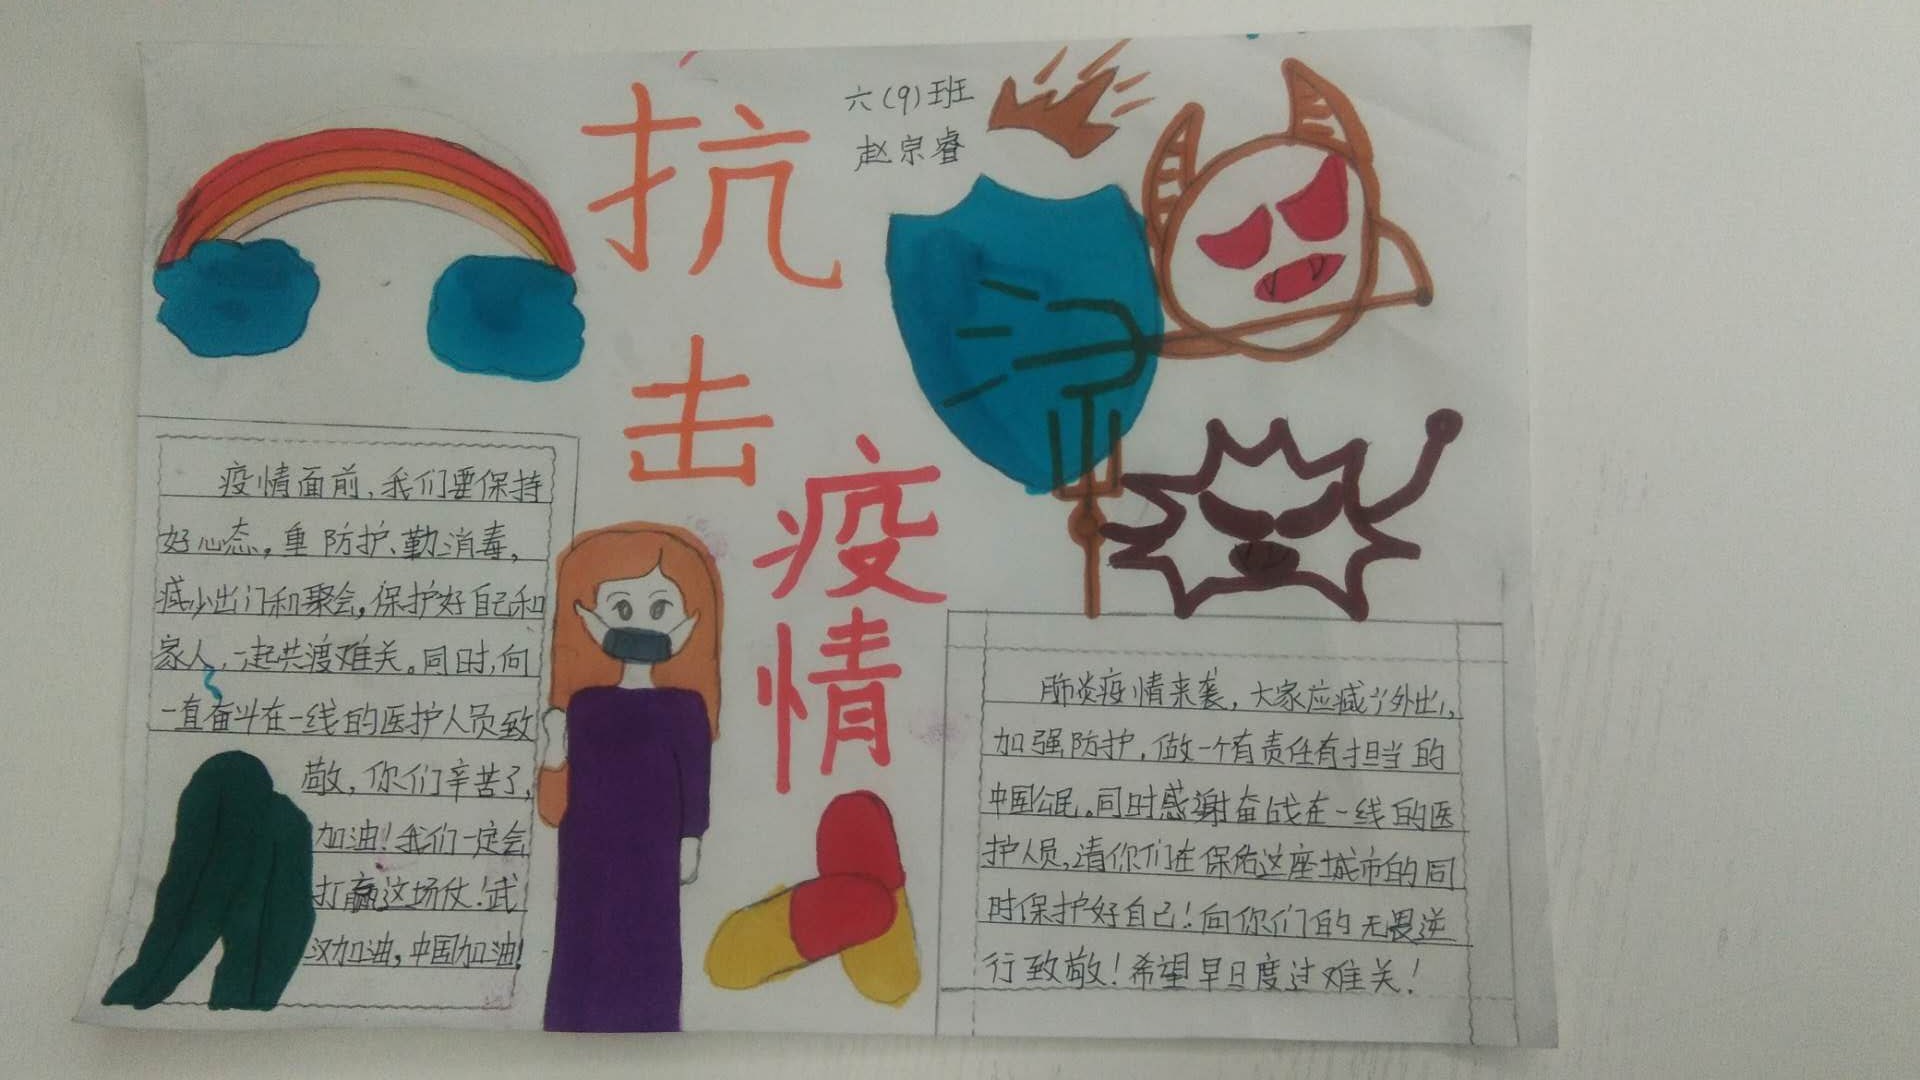 抗
击
疫
情
六(9)班
赵宗睿
疫情面前,我们要保持
好心态,重防护、勤消毒,
减少出门和聚会,保护好自己和
家人,一起共渡难关。同时,向
一直奋斗在一线的医护人员致
敬,你们辛苦了,
加油!我们一定会
打赢这场仗!武
汉加油,中国加油!
肺炎疫情来袭,大家应减少外出,
加强防护,做一个有责任有担当的
中国公民。同时感谢奋战在一线的医
护人员,请你们在保佑这座城市的同
时保护好自己!向你们的无畏逆
行致敬!希望早日度过难关!